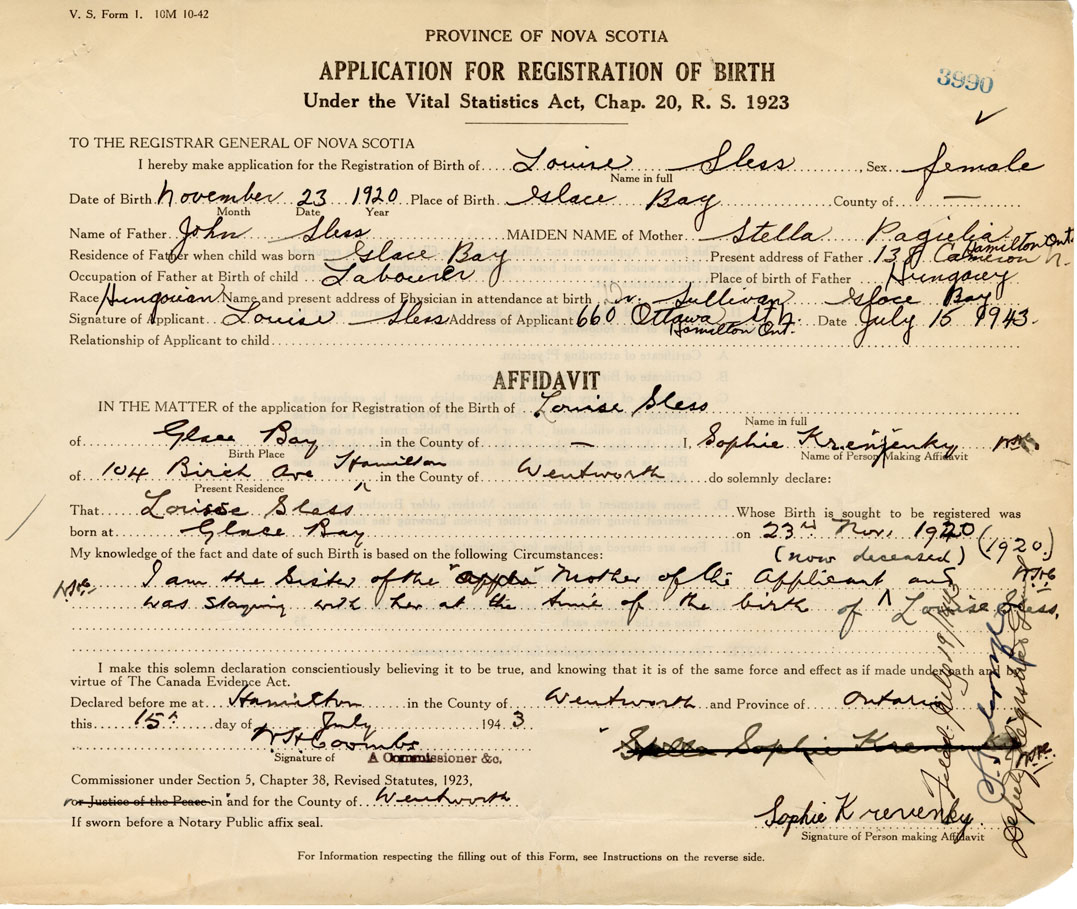 V. S. Form 1. 10M 10-42
PROVINCE OF NOVA SCOTIA
APPLICATION FOR REGISTRATION OF BIRTH
3990
Under the Vital Statistics Act, Chap. 20, R. S. 1923
TO THE REGISTRAR GENERAL OF NOVA SCOTIA
I hereby make application for the Registration of Birth of Louise Sless, Sex female
Name in full
Date of Birth November 23 1920 Place of Birth Glace Bay County of —
Month Date Year
Name of Father John Sless MAIDEN NAME of Mother Stella
Residence of Father when child was born Glace Bay Present address of Father 138 Cameron N. Hamilton Ont.
Occupation of Father at Birth of child Labourer Place of birth of Father Hungary
Race Hungarian Name and present address of Physician in attendance at birth Dr. Sullivan Glace Bay
Signature of Applicant Louise Sless Address of Applicant 660 Ottawa St N. Date July 15 1943.
Hamilton Ont.
Relationship of Applicant to child
AFFIDAVIT
IN THE MATTER of the application for Registration of the Birth of Louise Sless
Name in full
of Glace Bay in the County of — I, Sophie
Birth Place Name of Person Making Affidavit
of 104 Birch Ave Hamilton in the County of Wentworth do solemnly declare:
Present Residence
That Louise Sless Whose Birth is sought to be registered was
born at Glace Bay on 23rd Nov. 1920 (1920.)
My knowledge of the fact and date of such Birth is based on the following Circumstances: (now deceased)
I am the Sister of the Mother of the Applicant and
was staying with her at the time of the birth of Louise Sless.
I make this solemn declaration conscientiously believing it to be true, and knowing that it is of the same force and effect as if made under oath and
virtue of The Canada Evidence Act.
Declared before me at Hamilton in the County of Wentworth and Province of Ontario
this 15th day of July 1943
W H Coombs
Stella Sophie
Signature of A Commissioner &c.
Commissioner under Section 5, Chapter 38, Revised Statutes, 1923,
or Justice of the Peace in and for the County of Wentworth
If sworn before a Notary Public affix seal.
Sophie Krevenky.
Signature of Person making Affidavit
For Information respecting the filling out of this Form, see Instructions on the reverse side.
Filed: July 19/1943
Deputy Registrar General